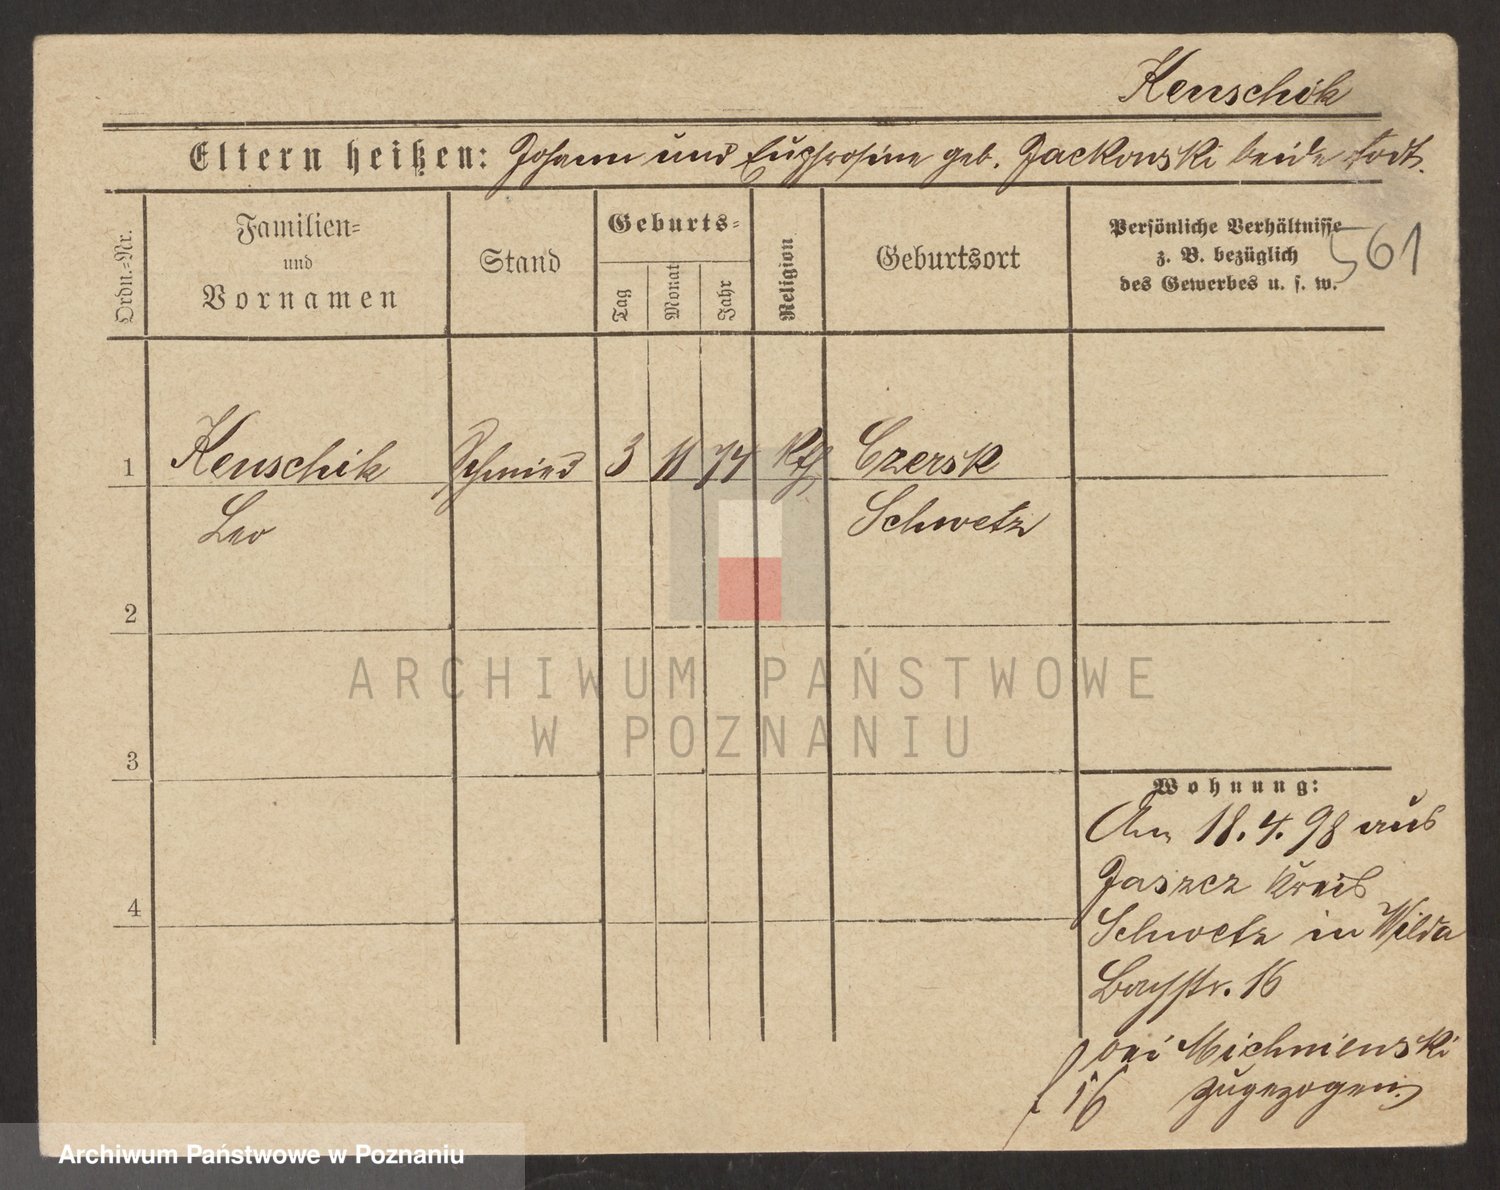 Kenschik
Eltern heißen: Johann und Euphrosine geb. Jackowski beide todt.
Ordn.-Nr.
Familien-
und
Vornamen
Stand
Geburts-
Tag
Monat
Jahr
Religion
Geburtsort
Persönliche Verhältnisse
z. B. bezüglich
des Gewerbes u. s. w.
561
1 Kenschik Schmied 3 11 74 Kth Czersk
Leo Schwetz
2
3
4
Wohnung:
Am 18.4.98 aus
Jaszcz Kreis
Schwetz in Wilda
Bachstr. 16
bei Michnienski
16 zugezogen.
ARCHIWUM PAŃSTWOWE
W POZNANIU
Archiwum Państwowe w Poznaniu